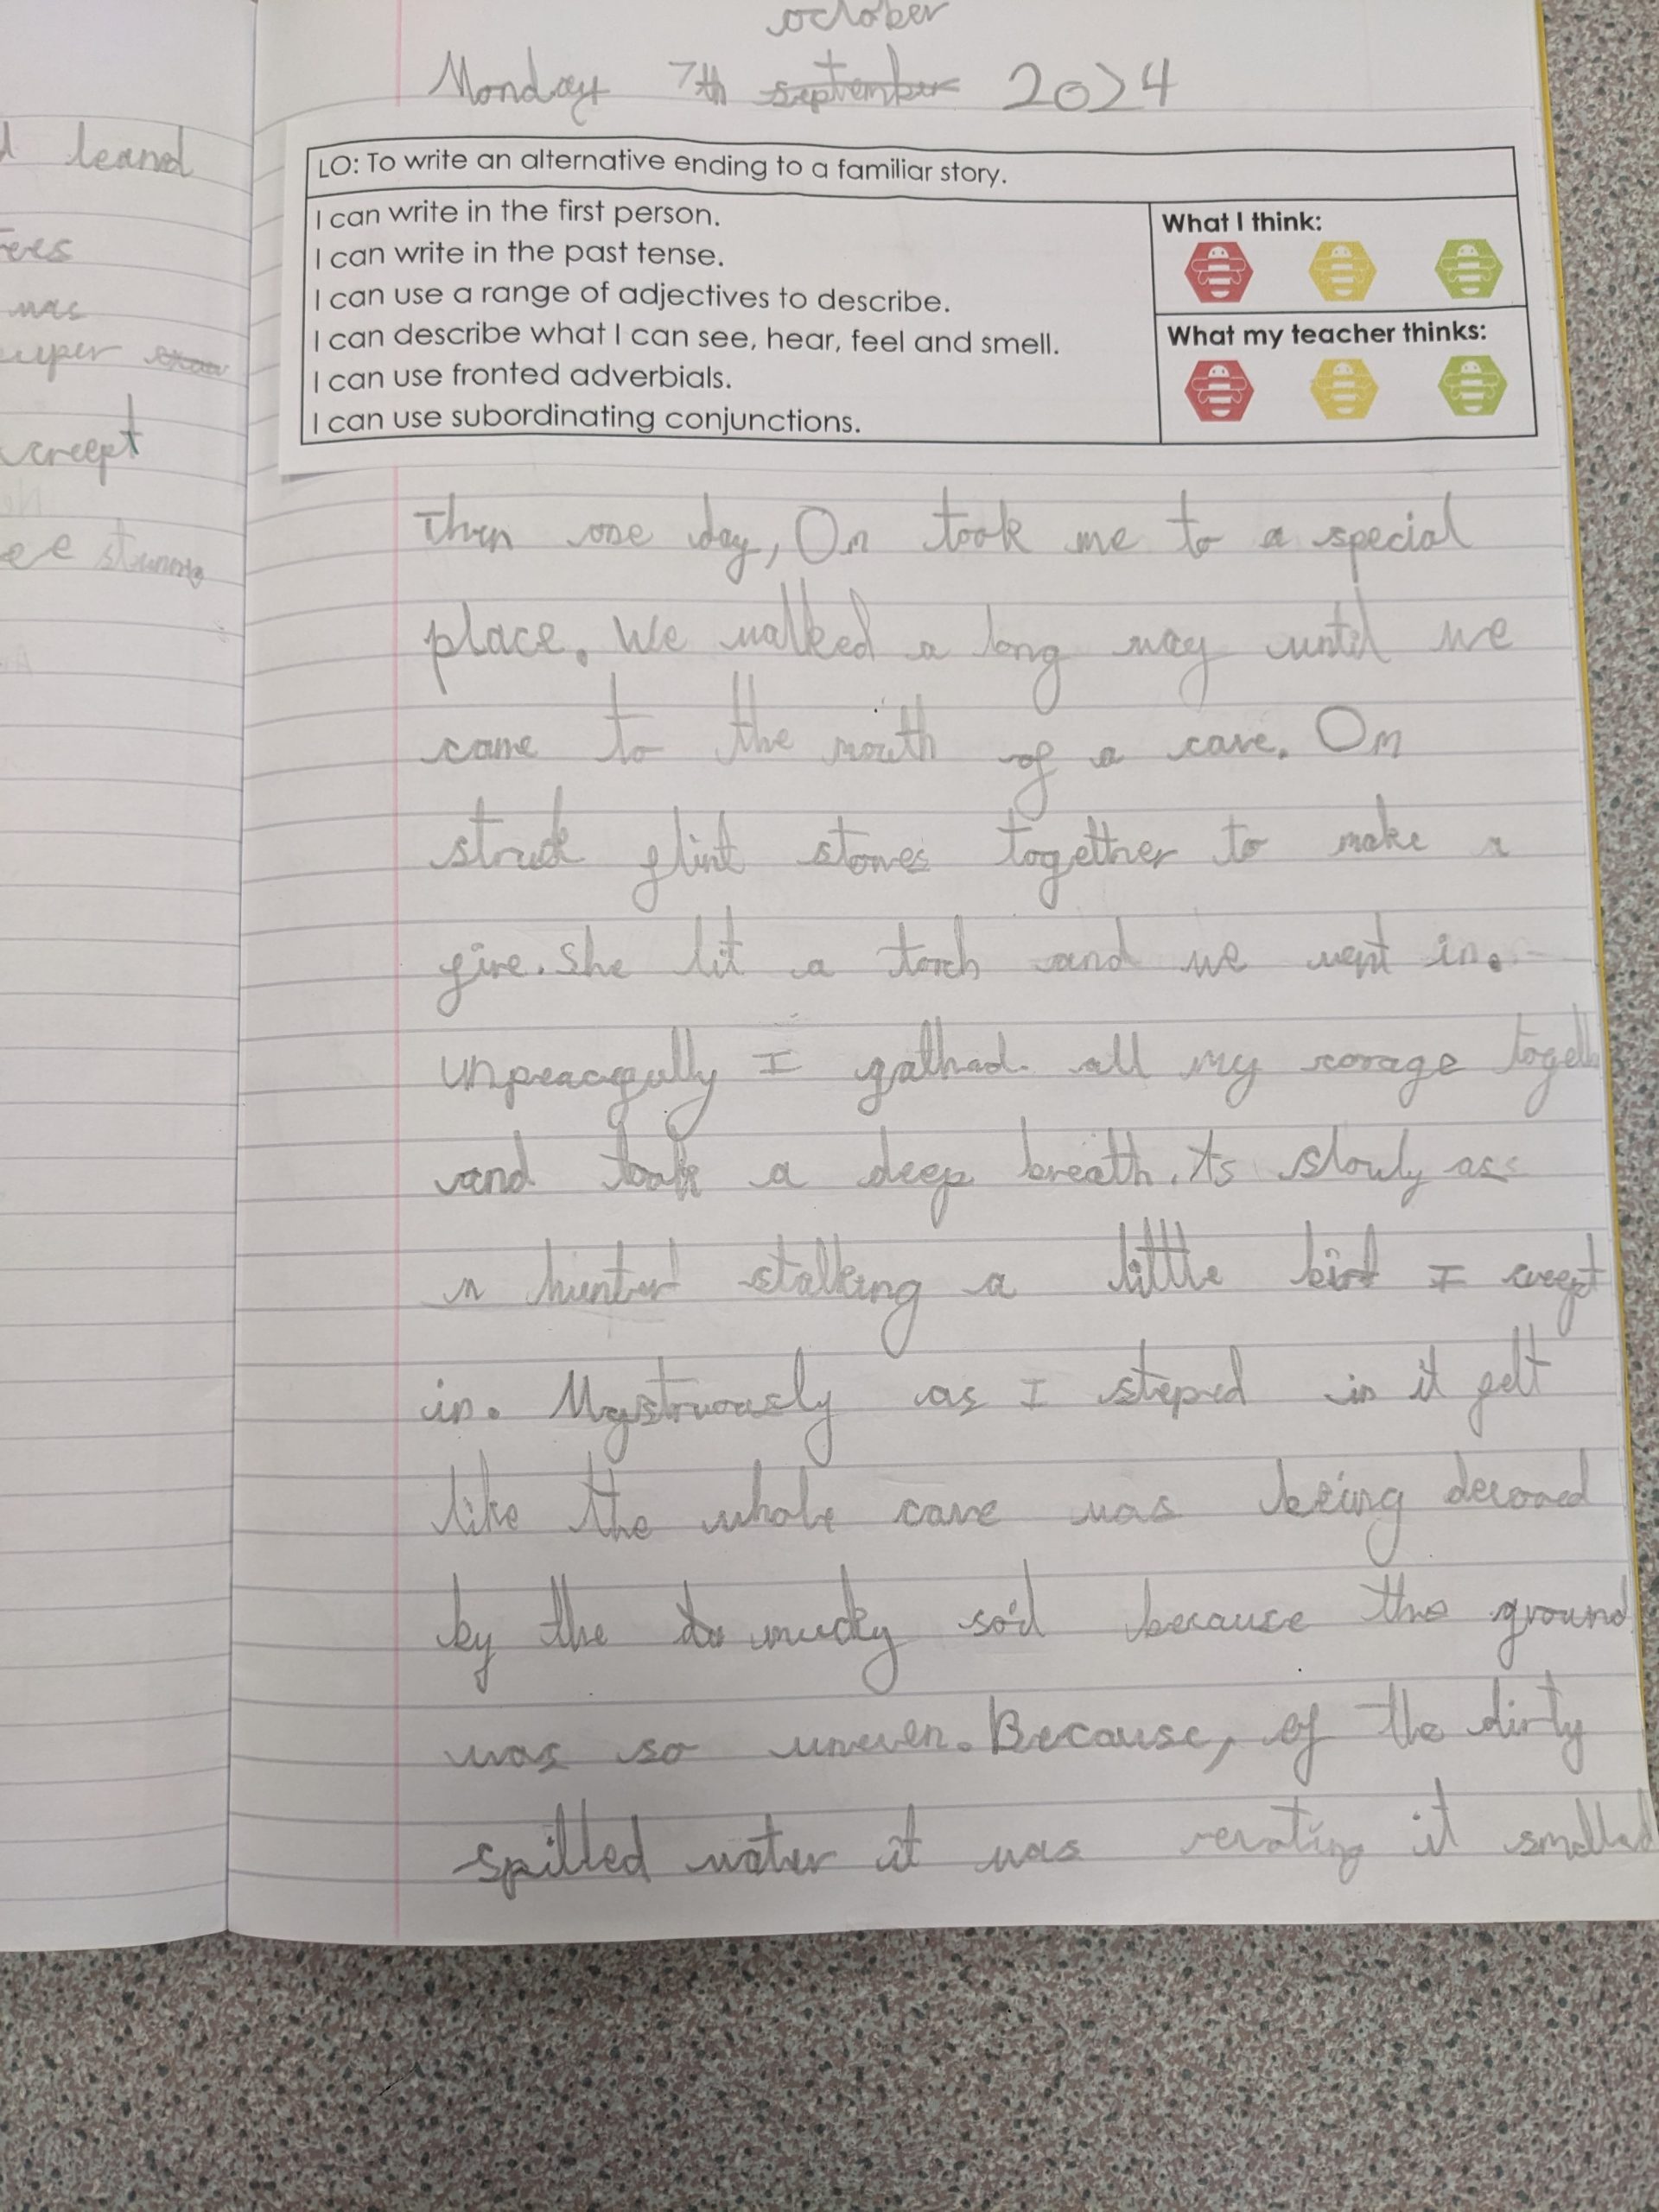 october
Monday 7th september 2024
LO: To write an alternative ending to a familiar story.
I can write in the first person.
I can write in the past tense.
I can use a range of adjectives to describe.
I can describe what I can see, hear, feel and smell.
I can use fronted adverbials.
I can use subordinating conjunctions.
What I think:
What my teacher thinks:
Then one day, Om took me to a special
place. We walked a long way until we
came to the mouth of a cave. Om
struck flint stones together to make a
fire. She lit a torch and we went in.
Unpeacefully I gathad all my corage
and took a deep breath. As slowly as
a hunter stalking a little bird I creept
in. Mystruously as I steped in it felt
like the whole cave was being devored
by the mucky soil because the ground
was so uneven. Because, of the dirty
spilled water it was revoting it smelled
leand
was
creept